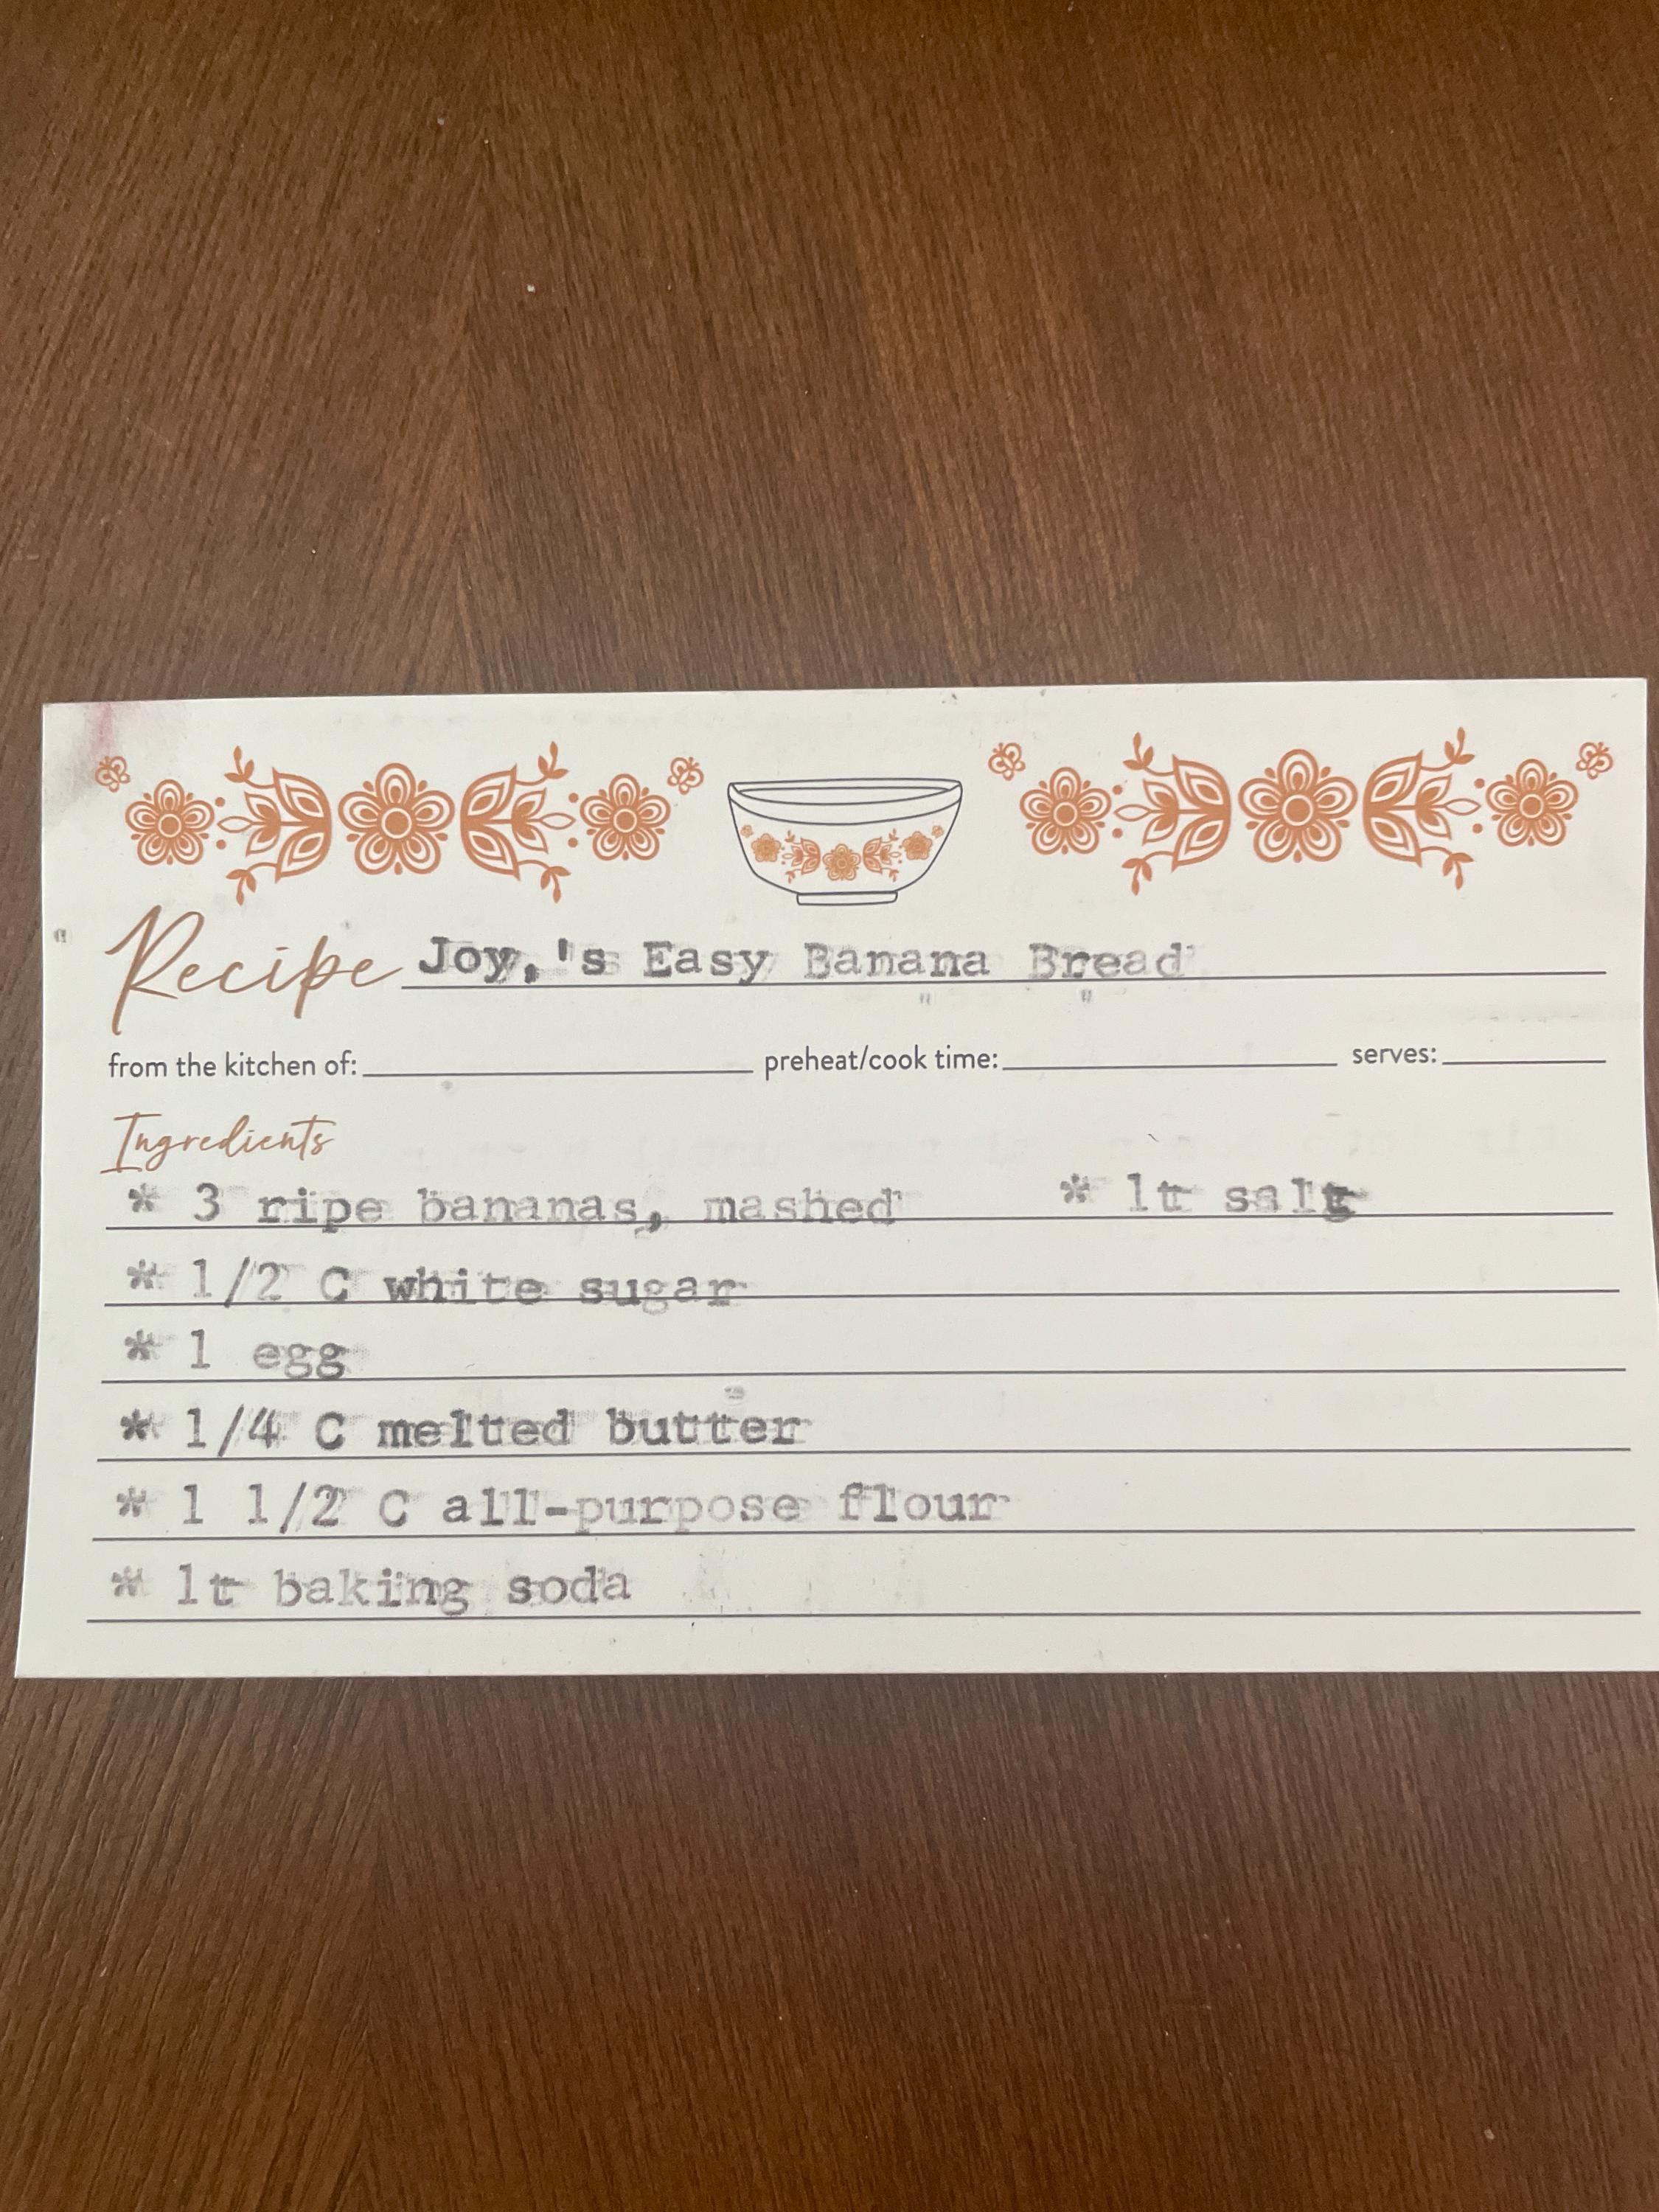 Recipe Joy,'s Easy Banana Bread
from the kitchen of: preheat/cook time: serves:
Ingredients
* 3 ripe bananas, mashed * 1t salt
* 1/2 C white sugar
* 1 egg
* 1/4 C melted butter
* 1 1/2 C all-purpose flour
* 1t baking soda